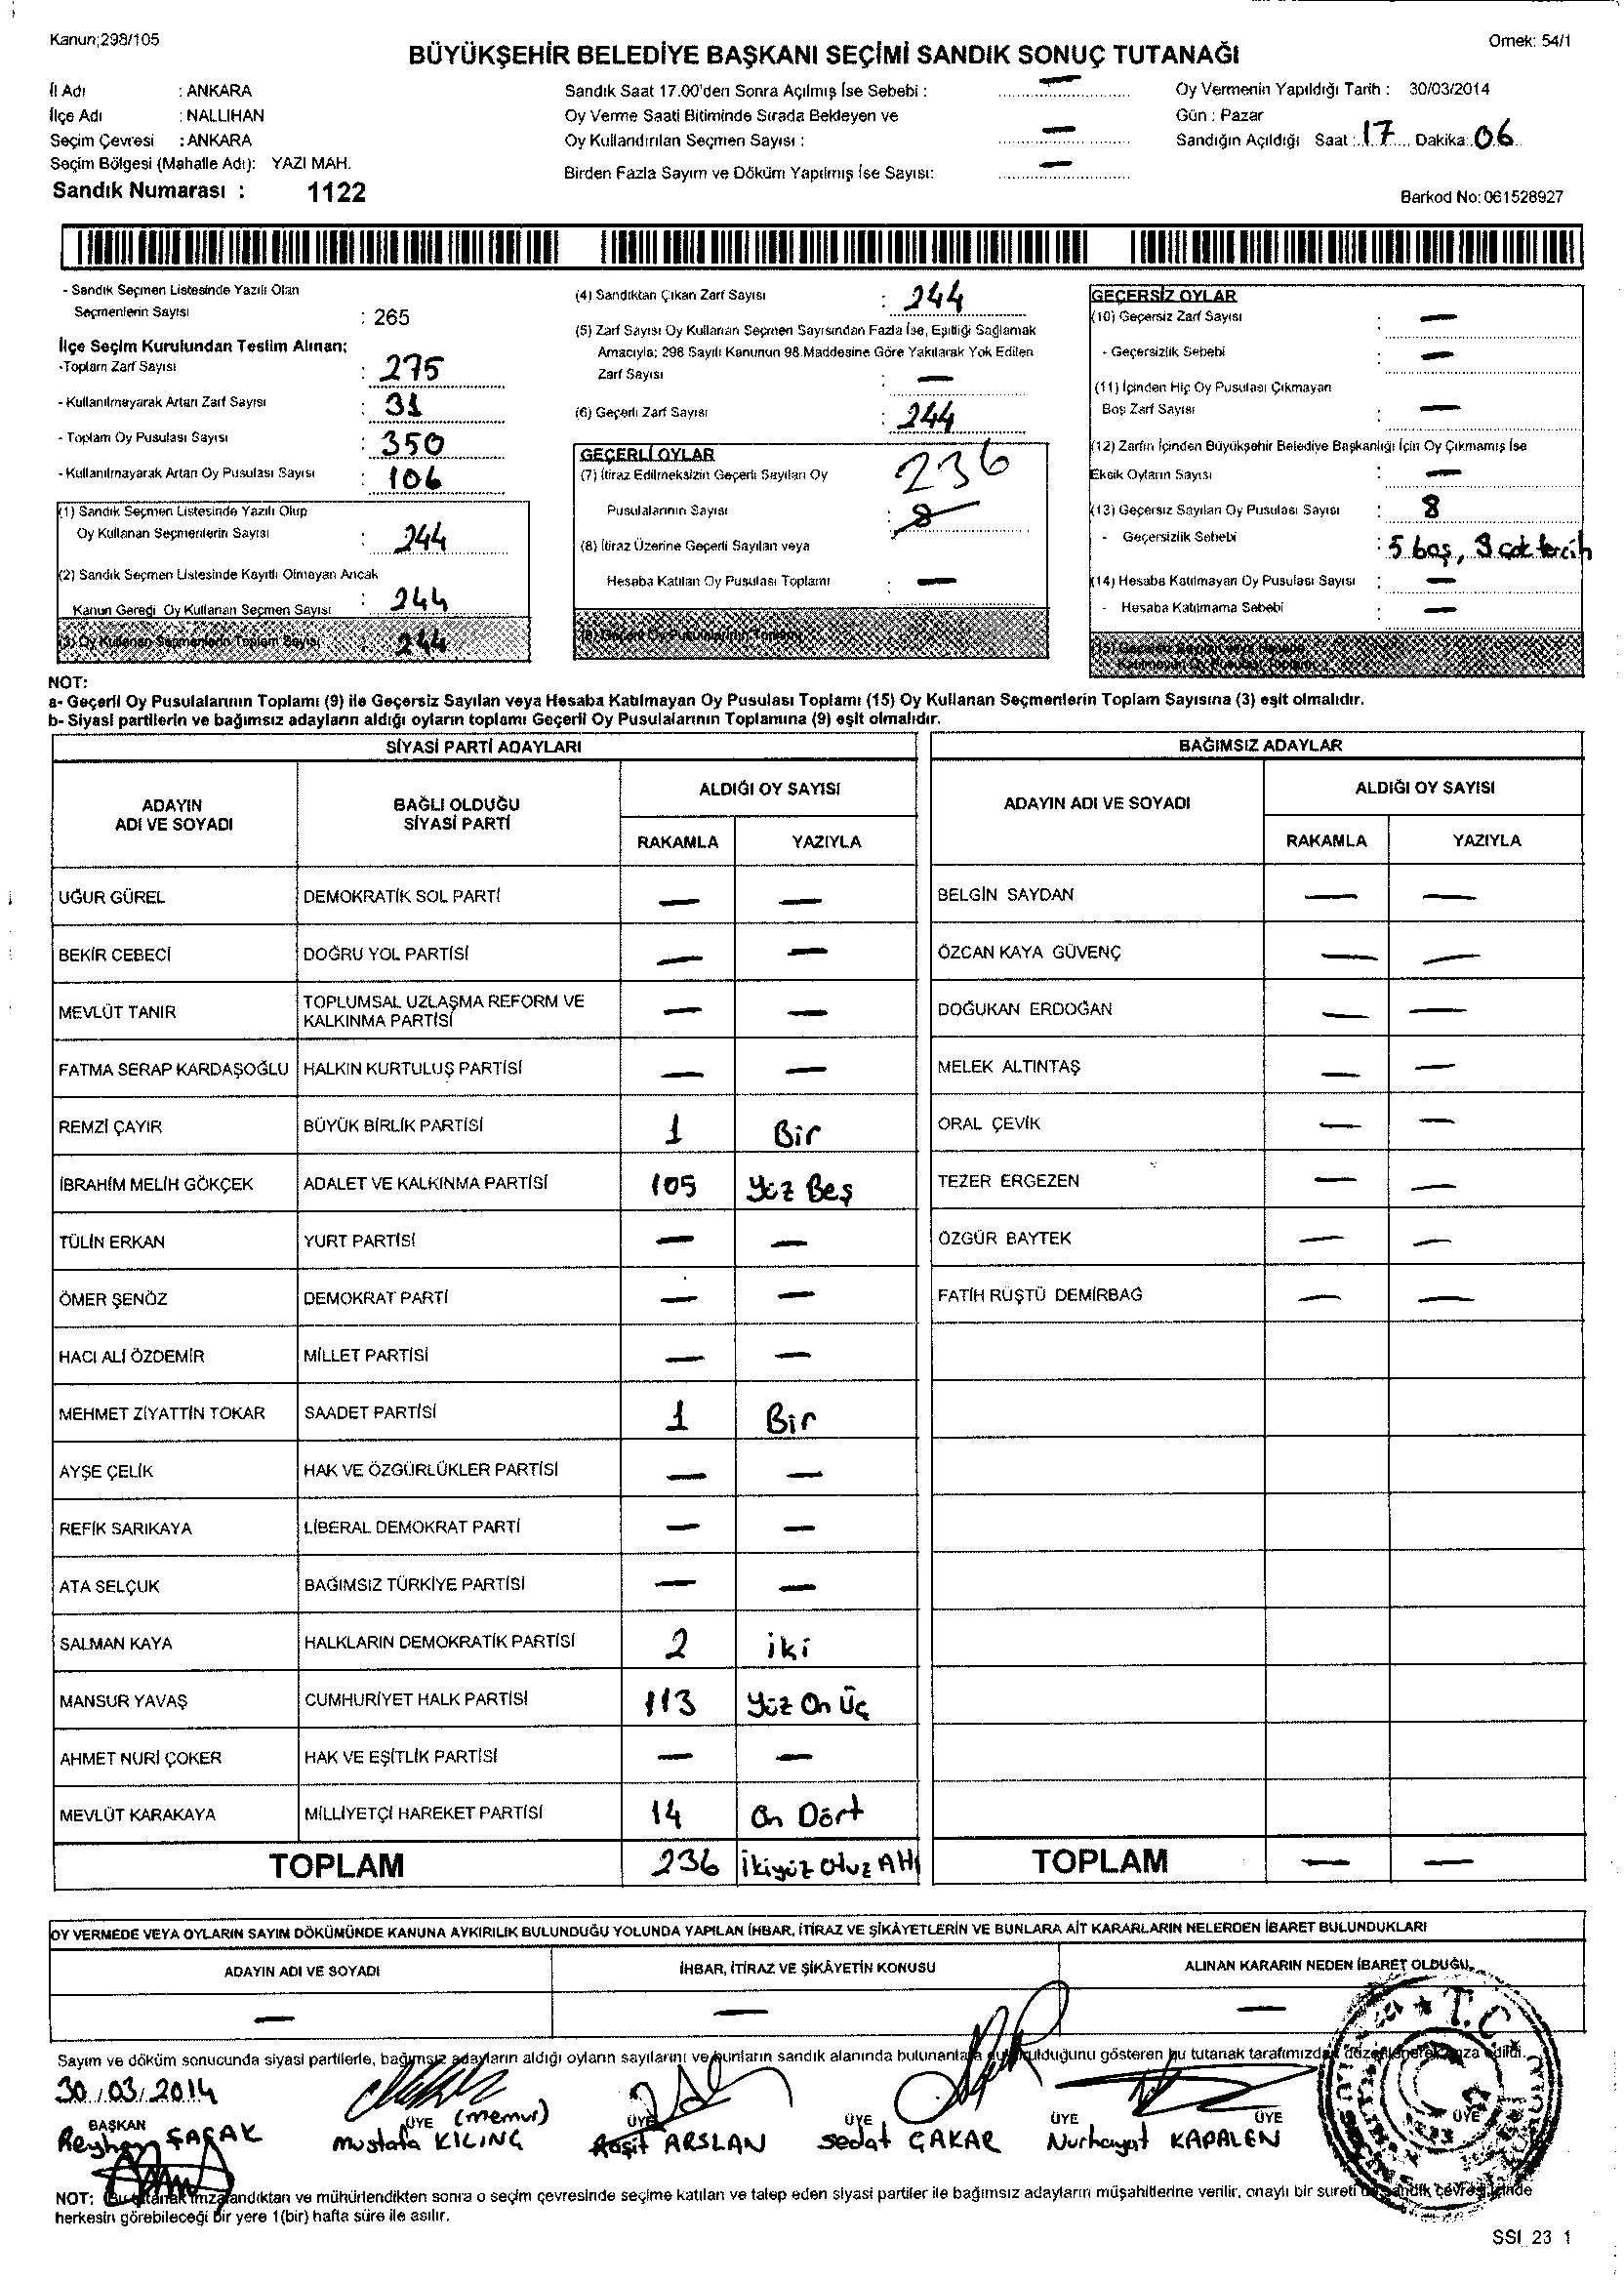 Kanun;298/105
Örnek: 54/1
BÜYÜKŞEHİR BELEDİYE BAŞKANI SEÇİMİ SANDIK SONUÇ TUTANAĞI
İl Adı : ANKARA
İlçe Adı : NALLIHAN
Seçim Çevresi : ANKARA
Seçim Bölgesi (Mahalle Adı): YAZI MAH.
Sandık Numarası : 1122
Sandık Saat 17.00'den Sonra Açılmış İse Sebebi : —
Oy Verme Saati Bitiminde Sırada Bekleyen ve
Oy Kullandırılan Seçmen Sayısı : —
Birden Fazla Sayım ve Döküm Yapılmış İse Sayısı: —
Oy Vermenin Yapıldığı Tarih : 30/03/2014
Gün : Pazar
Sandığın Açıldığı Saat : 17 Dakika: 06
Barkod No: 061528927
- Sandık Seçmen Listesinde Yazılı Olan
Seçmenlerin Sayısı : 265
İlçe Seçim Kurulundan Teslim Alınan;
-Toplam Zarf Sayısı : 275
- Kullanılmayarak Artan Zarf Sayısı : 31
- Toplam Oy Pusulası Sayısı : 350
- Kullanılmayarak Artan Oy Pusulası Sayısı : 106
(1) Sandık Seçmen Listesinde Yazılı Olup
Oy Kullanan Seçmenlerin Sayısı : 244
(2) Sandık Seçmen Listesinde Kayıtlı Olmayan Ancak
Kanun Gereği Oy Kullanan Seçmen Sayısı : 244
(3) Oy Kullanan Seçmenlerin Toplam Sayısı : 244
(4) Sandıktan Çıkan Zarf Sayısı : 244
(5) Zarf Sayısı Oy Kullanan Seçmen Sayısından Fazla İse, Eşitliği Sağlamak
Amacıyla; 298 Sayılı Kanunun 98.Maddesine Göre Yakılarak Yok Edilen
Zarf Sayısı : —
(6) Geçerli Zarf Sayısı : 244
GEÇERLİ OYLAR
(7) İtiraz Edilmeksizin Geçerli Sayılan Oy 236
Pusulalarının Sayısı : 8
(8) İtiraz Üzerine Geçerli Sayılan veya
Hesaba Katılan Oy Pusulası Toplamı : —
(9) Geçerli Oy Pusulalarının Toplamı
GEÇERSİZ OYLAR
(10) Geçersiz Zarf Sayısı : —
- Geçersizlik Sebebi : —
(11) İçinden Hiç Oy Pusulası Çıkmayan
Boş Zarf Sayısı : —
(12) Zarfın İçinden Büyükşehir Belediye Başkanlığı İçin Oy Çıkmamış İse
Eksik Oyların Sayısı : —
(13) Geçersiz Sayılan Oy Pusulası Sayısı : 8
- Geçersizlik Sebebi : 5 boş, 3 çok tercih
(14) Hesaba Katılmayan Oy Pusulası Sayısı : —
- Hesaba Katılmama Sebebi : —
(15) Geçersiz Sayılan veya Hesaba
Katılmayan Oy Pusulası Toplamı
NOT:
a- Geçerli Oy Pusulalarının Toplamı (9) ile Geçersiz Sayılan veya Hesaba Katılmayan Oy Pusulası Toplamı (15) Oy Kullanan Seçmenlerin Toplam Sayısına (3) eşit olmalıdır.
b- Siyasi partilerin ve bağımsız adayların aldığı oyların toplamı Geçerli Oy Pusulalarının Toplamına (9) eşit olmalıdır.
SİYASİ PARTİ ADAYLARI
ADAYIN ADI VE SOYADI BAĞLI OLDUĞU SİYASİ PARTİ ALDIĞI OY SAYISI
RAKAMLA YAZIYLA
UĞUR GÜREL DEMOKRATİK SOL PARTİ — —
BEKİR CEBECİ DOĞRU YOL PARTİSİ — —
MEVLÜT TANIR TOPLUMSAL UZLAŞMA REFORM VE KALKINMA PARTİSİ — —
FATMA SERAP KARDAŞOĞLU HALKIN KURTULUŞ PARTİSİ — —
REMZİ ÇAYIR BÜYÜK BİRLİK PARTİSİ 1 Bir
İBRAHİM MELİH GÖKÇEK ADALET VE KALKINMA PARTİSİ 105 Yüz Beş
TÜLİN ERKAN YURT PARTİSİ — —
ÖMER ŞENÖZ DEMOKRAT PARTİ — —
HACI ALİ ÖZDEMİR MİLLET PARTİSİ — —
MEHMET ZİYATTİN TOKAR SAADET PARTİSİ 1 Bir
AYŞE ÇELİK HAK VE ÖZGÜRLÜKLER PARTİSİ — —
REFİK SARIKAYA LİBERAL DEMOKRAT PARTİ — —
ATA SELÇUK BAĞIMSIZ TÜRKİYE PARTİSİ — —
SALMAN KAYA HALKLARIN DEMOKRATİK PARTİSİ 2 iki
MANSUR YAVAŞ CUMHURİYET HALK PARTİSİ 113 Yüz On Üç
AHMET NURİ ÇOKER HAK VE EŞİTLİK PARTİSİ — —
MEVLÜT KARAKAYA MİLLİYETÇİ HAREKET PARTİSİ 14 On Dört
TOPLAM 236 İkiyüz Otuz Altı
BAĞIMSIZ ADAYLAR
ADAYIN ADI VE SOYADI ALDIĞI OY SAYISI
RAKAMLA YAZIYLA
BELGİN SAYDAN — —
ÖZCAN KAYA GÜVENÇ — —
DOĞUKAN ERDOĞAN — —
MELEK ALTINTAŞ — —
ORAL ÇEVİK — —
TEZER ERGEZEN — —
ÖZGÜR BAYTEK — —
FATİH RÜŞTÜ DEMİRBAĞ — —
TOPLAM — —
OY VERMEDE VEYA OYLARIN SAYIM DÖKÜMÜNDE KANUNA AYKIRILIK BULUNDUĞU YOLUNDA YAPILAN İHBAR, İTİRAZ VE ŞİKÂYETLERİN VE BUNLARA AİT KARARLARIN NELERDEN İBARET BULUNDUKLARI
ADAYIN ADI VE SOYADI İHBAR, İTİRAZ VE ŞİKÂYETİN KONUSU ALINAN KARARIN NEDEN İBARET OLDUĞU
— — —
Sayım ve döküm sonucunda siyasi partilerle, bağımsız adayların aldığı oyların sayılarını ve bunların sandık alanında bulunanlara duyurulduğunu gösteren bu tutanak tarafımızdan düzenlenerek imza edildi.
30/03/2014
BAŞKAN ÜYE (memur) ÜYE ÜYE ÜYE ÜYE ÜYE
Reyhan Mustafa KILINÇ Raşit ARSLAN Sedat ÇAKAR Nurhayat KAPALEN
T.C.
NOT: Bu tutanak imzalandıktan ve mühürlendikten sonra o seçim çevresinde seçime katılan ve talep eden siyasi partiler ile bağımsız adayların müşahitlerine verilir, onaylı bir sureti de sandık çevresinde
herkesin görebileceği bir yere 1(bir) hafta süre ile asılır.
SSI 23 1